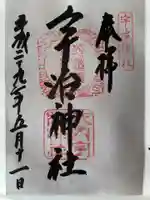 奉拝
宇治神社
平成二九年五月十一日